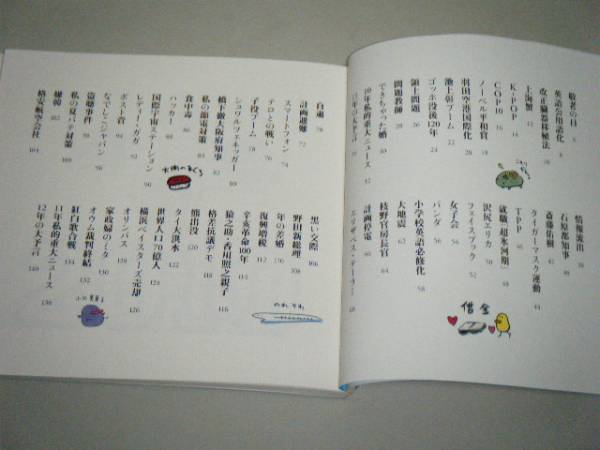 敬老の日 6
英語公用語化 8
改正臓器移植法
上海蟹
K・POP
COP10 16
ノーベル平和賞
羽田空港国際化
池上彰ブーム 22
ゴッホ没後120年 24
領土問題 26
問題教師 28
できちゃった婚 30
10年私的重大ニュース 32
11年の大予言
情報流出 38
石原都知事
斎藤佑樹
タイガーマスク運動 44
TPP
就職「超氷河期」
沢尻エリカ 50
フェイスブック 52
女子会 54
パンダ 56
小学校英語必修化 58
大地震
枝野官房長官 64
計画停電 66
エリザベス・テーラー 68
借金
自粛 70
計画避難 72
スマートフォン 74
テロとの戦い 76
子役ブーム 78
シュワルツェネッガー
橋下徹大阪府知事
私の節電対策
食中毒 86
ハッカー
国際宇宙ステーション 90
レディー・ガガ 92
ポスト菅 94
なでしこジャパン
盗聴事件
私の夏バテ対策 100
嫌韓 102
格安航空会社 104
黒い交際 106
野田新総理 108
年の差婚 110
復興増税 112
辛亥革命100年 114
猿之助・香川照之親子 116
格差抗議デモ 118
熊出没
タイ大洪水 122
世界人口70億人 124
横浜ベイスターズ売却 126
オリンパス 128
家政婦のミタ
オウム裁判終結
紅白歌合戦 134
11年私的重大ニュース 136
12年の大予言 140